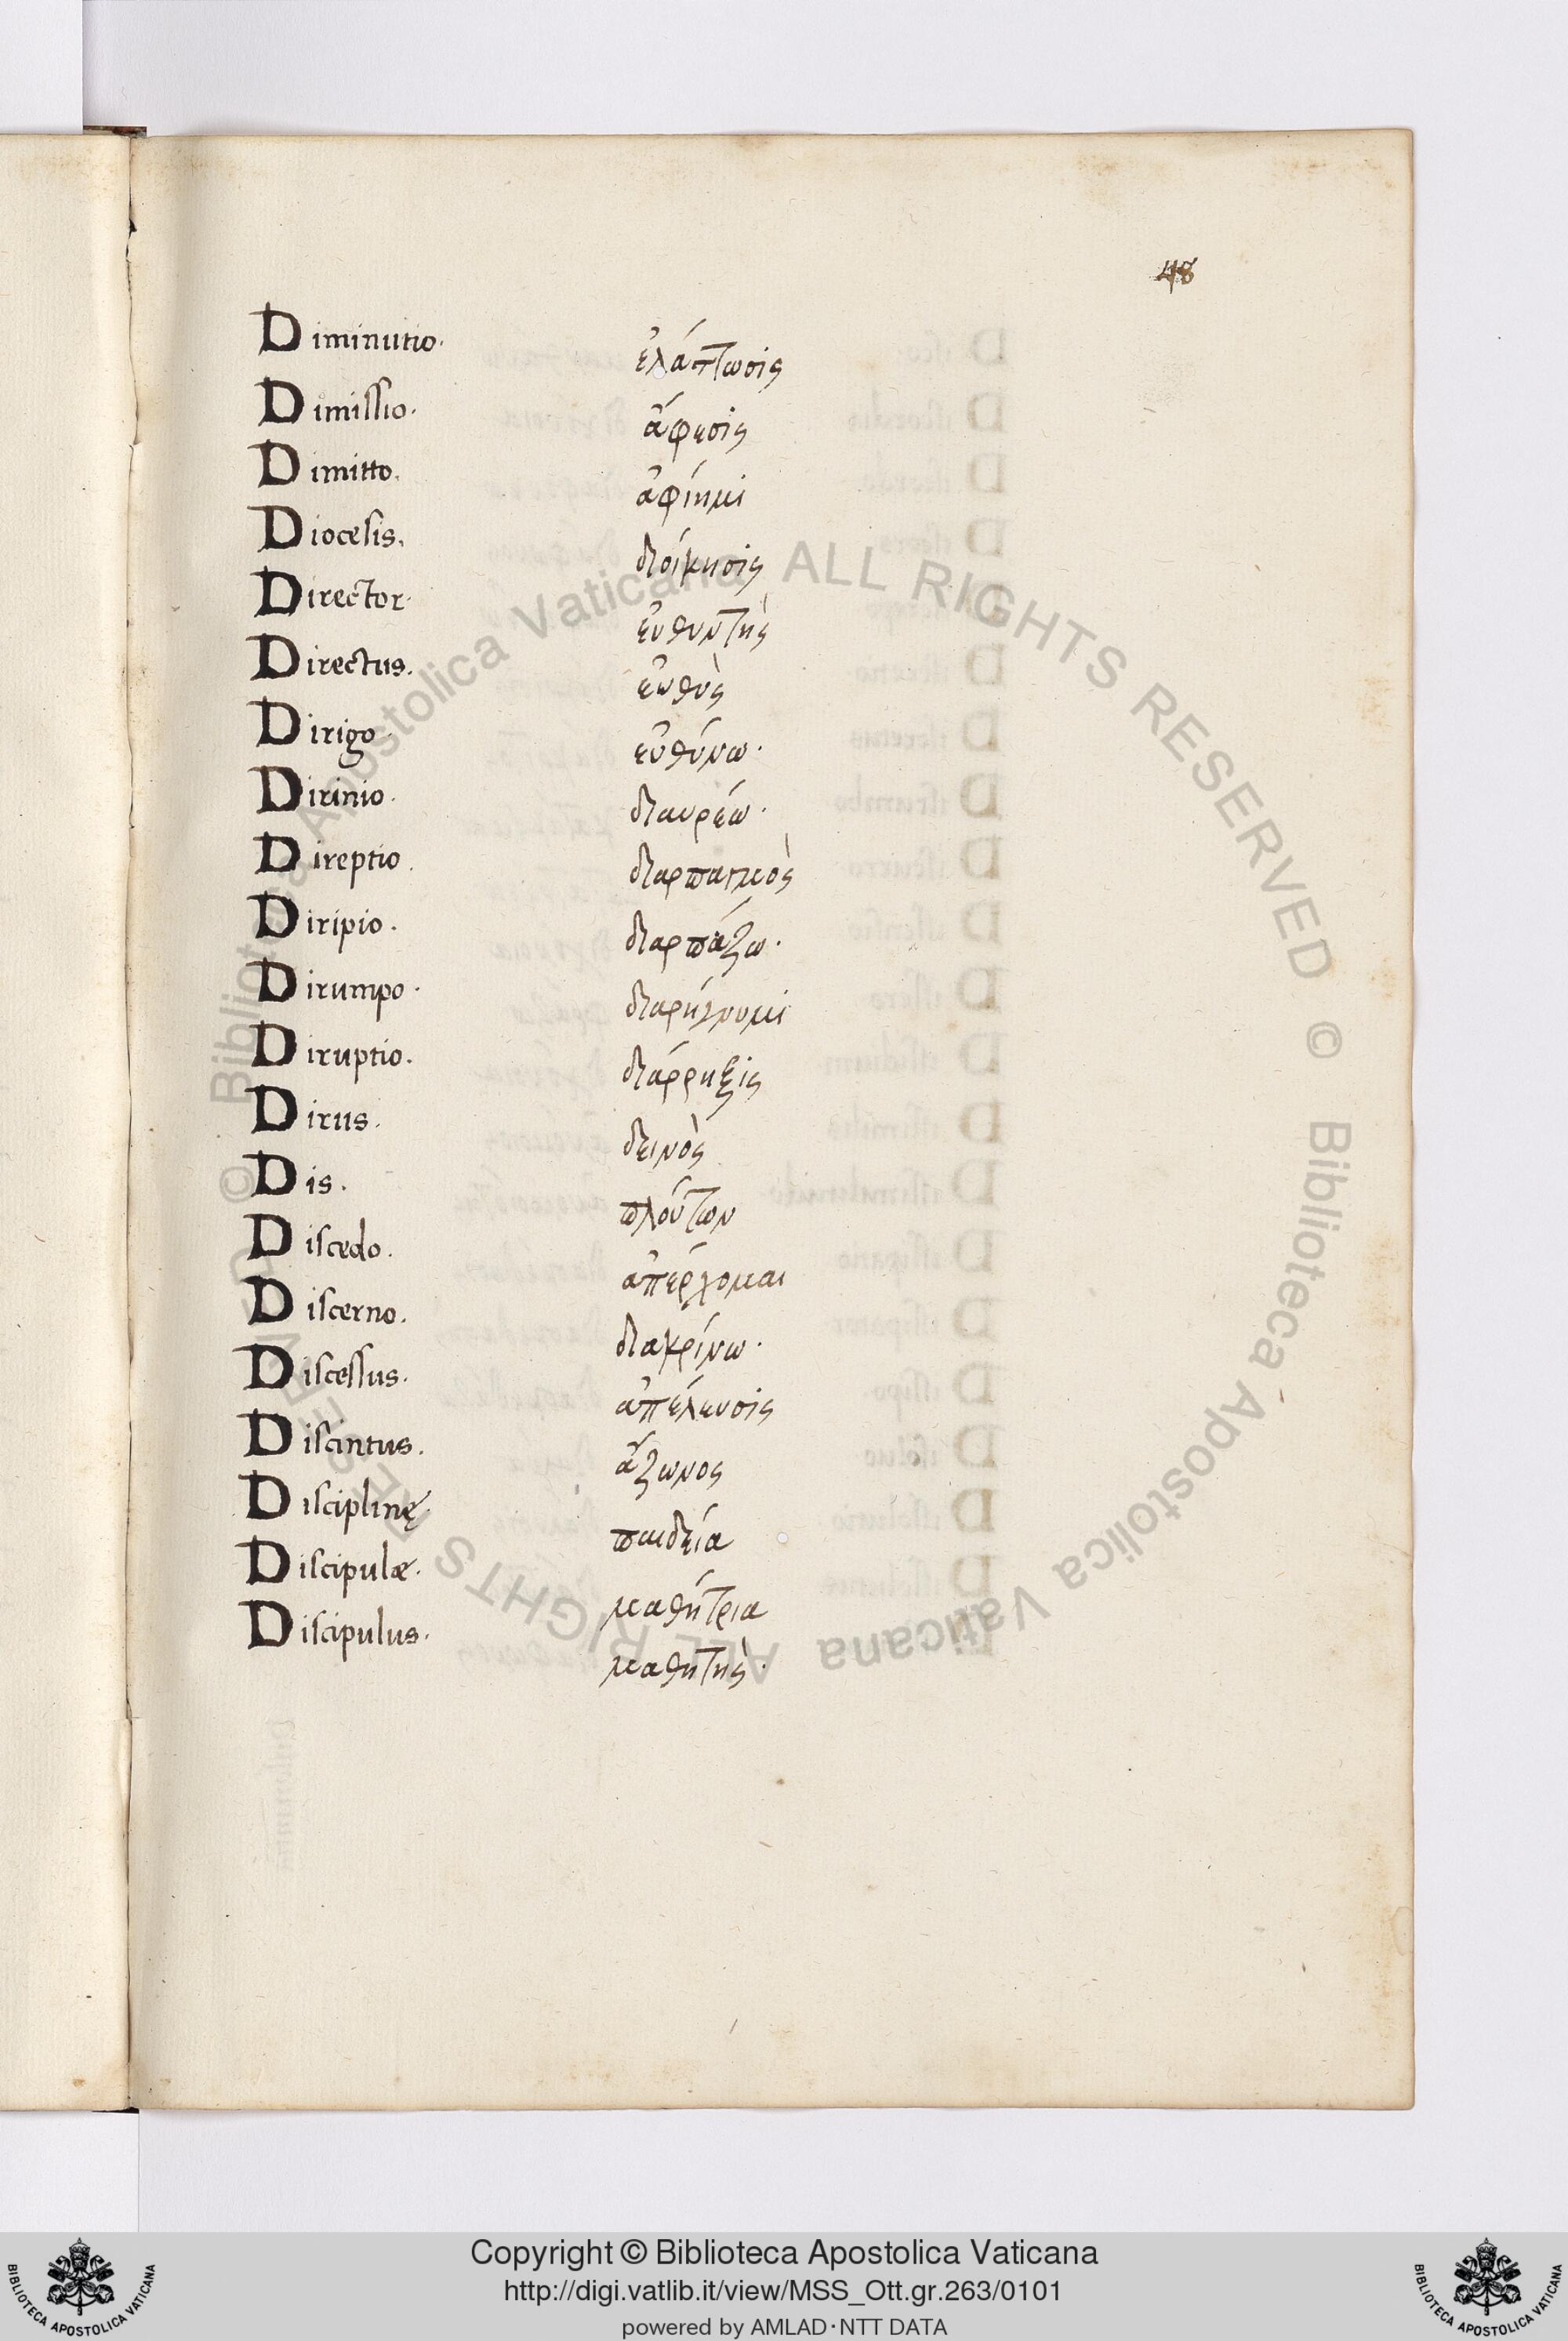 48
Diminutio. ἐλάπτωσις
Dimissio. ἄφεσις
Dimitto. ἀφίημι
Diocesis. διοίκησις
Director. εὐθυντὴς
Directus. εὐθὺς
Dirigo. εὐθύνω.
Dirinio. διαυρέω.
Direptio. διαρπαγμὸς
Diripio. διαρπάζω.
Dirumpo. διαρήγνυμι
Diruptio. διάρρηξις
Dirus. δεινὸς
Dis. πλούτων
Discedo. ἀπέρχομαι
Discerno. διακρίνω.
Discessus. ἀπέλευσις
Discintus. ἄζωνος
Disciplinę. παιδεία
Discipulæ. μαθήτρια
Discipulus. μαθητὴς.
© Biblioteca Apostolica Vaticana ALL RIGHTS RESERVED © Biblioteca Apostolica Vaticana ALL RIGHTS RESERVED
Copyright © Biblioteca Apostolica Vaticana
http://digi.vatlib.it/view/MSS_Ott.gr.263/0101
powered by AMLAD·NTT DATA
BIBLIOTECA APOSTOLICA VATICANA
BIBLIOTECA APOSTOLICA VATICANA